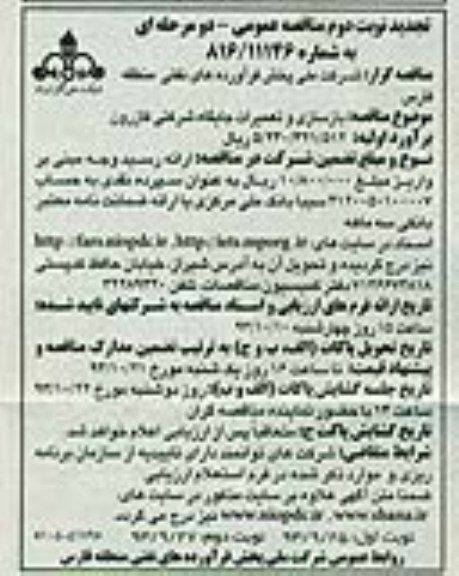 تجدید نوبت دوم مناقصه عمومی - دو مرحله ای
به شماره ۸۱۶/۱۱۱۴۶
مناقصه گزار: شرکت ملی پخش فرآورده های نفتی منطقه
فارس
موضوع مناقصه: بازسازی و تعمیرات جایگاه شرکتی کازرون
برآورد اولیه: ریال
نوع و مبلغ تضمین شرکت در مناقصه: ارائه رسید وجه مبنی بر
واریز مبلغ ریال به عنوان سپرده نقدی به حساب
سیبا بانک ملی مرکزی یا ارائه ضمانت نامه معتبر
بانکی سه ماهه
اسناد در سایت های http://iets.mporg.ir , http://fars.niopdc.ir
نیز درج گردیده و تحویل آن به آدرس شیراز، خیابان حافظ کدپستی
دفتر کمیسیون مناقصات تلفن
تاریخ ارائه فرم های ارزیابی و اسناد مناقصه به شرکتهای تایید شده:
ساعت ۱۵ روز چهارشنبه ۹۳/۱۰/۱۰
تاریخ تحویل پاکات (الف، ب و ج) به ترتیب تضمین مدارک مناقصه و
پیشنهاد قیمت: تا ساعت ۱۶ روز یک شنبه مورخ ۹۳/۱۰/۲۱
تاریخ جلسه گشایش پاکات (الف و ب): روز دوشنبه مورخ ۹۳/۱۰/۲۲
ساعت ۱۳ با حضور نماینده مناقصه گران
تاریخ گشایش پاکت ج: متعاقبا پس از ارزیابی اعلام خواهد شد.
شرایط متقاضی: شرکت های توانمند دارای تاییدیه از سازمان برنامه
ریزی و موارد ذکر شده در فرم استعلام ارزیابی
ضمنا متن آگهی علاوه بر سایت مذکور در سایت های
www.shana.ir , www.niopdc.ir نیز درج می گردد.
نوبت اول: ۹۳/۹/۲۵ نوبت دوم: ۹۳/۹/۲۷
روابط عمومی شرکت ملی پخش فرآورده های نفتی منطقه فارس